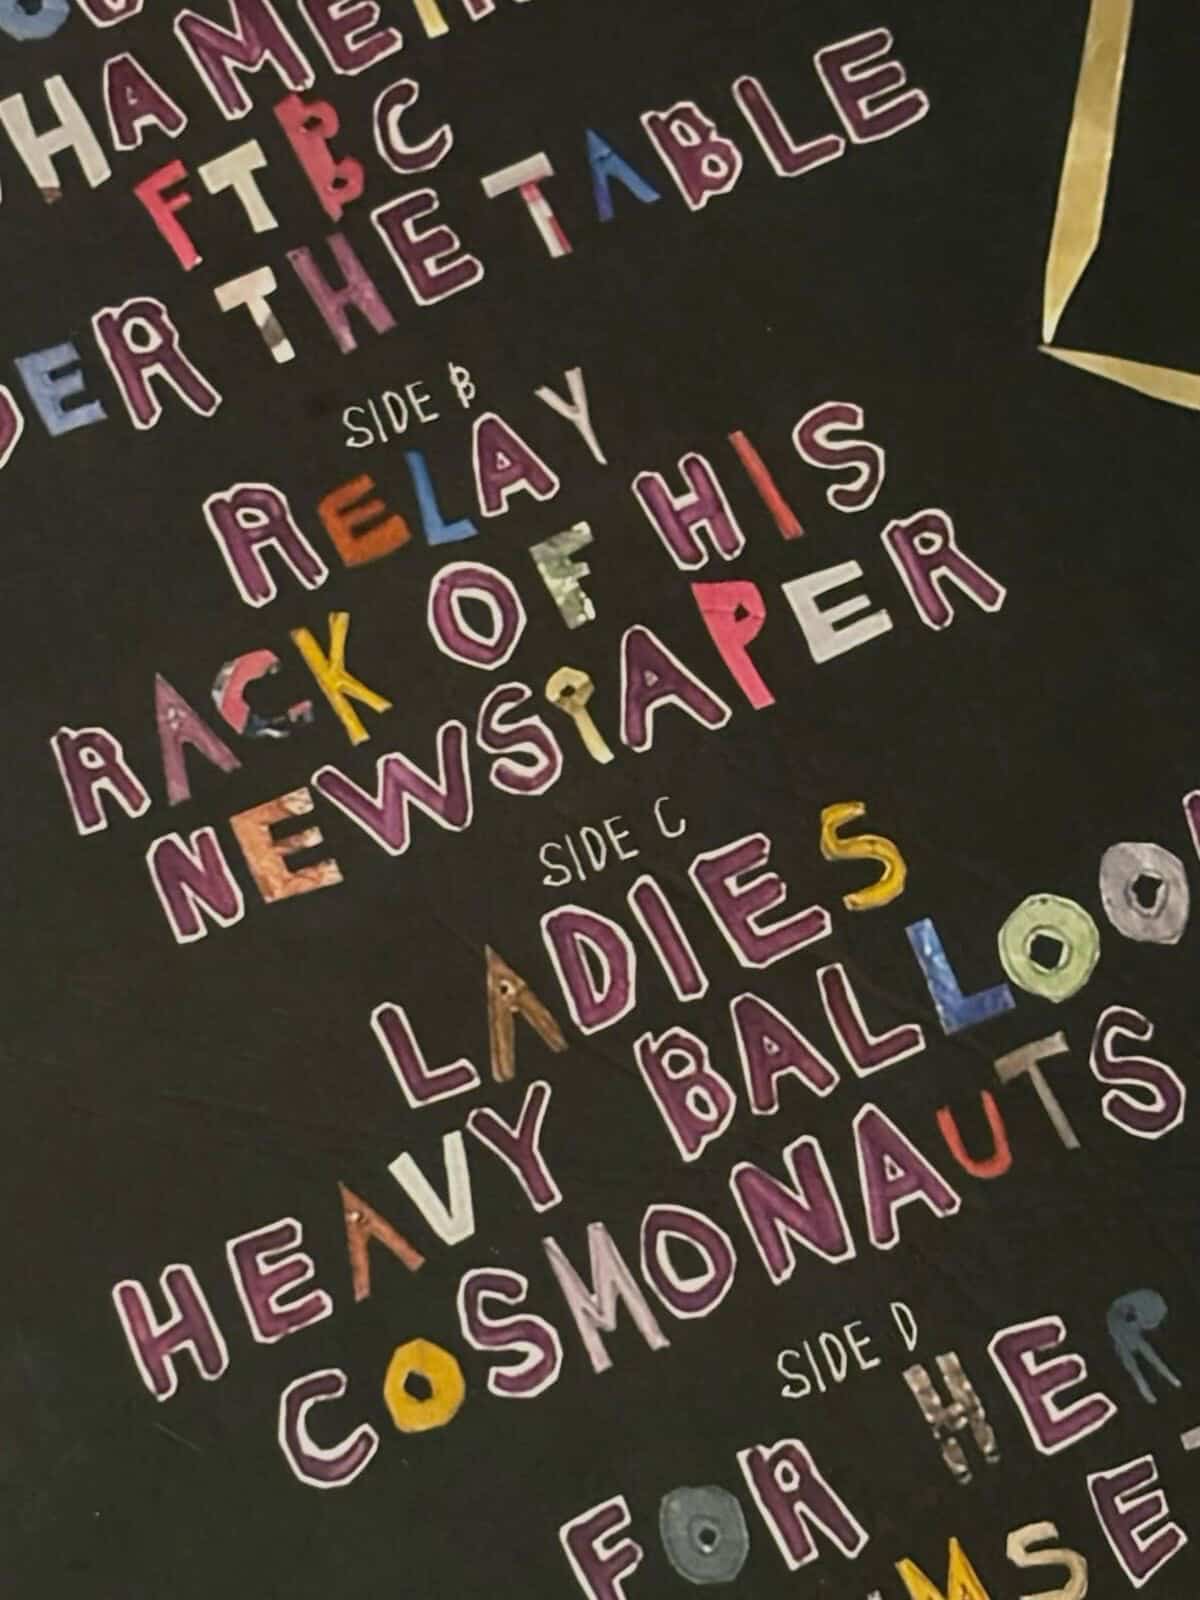 FTBC
DER THE TABLE
SIDE B
RELAY
RACK OF HIS
NEWSPAPER
SIDE C
LADIES
HEAVY BALLOO
COSMONAUTS
SIDE D
FOR HER